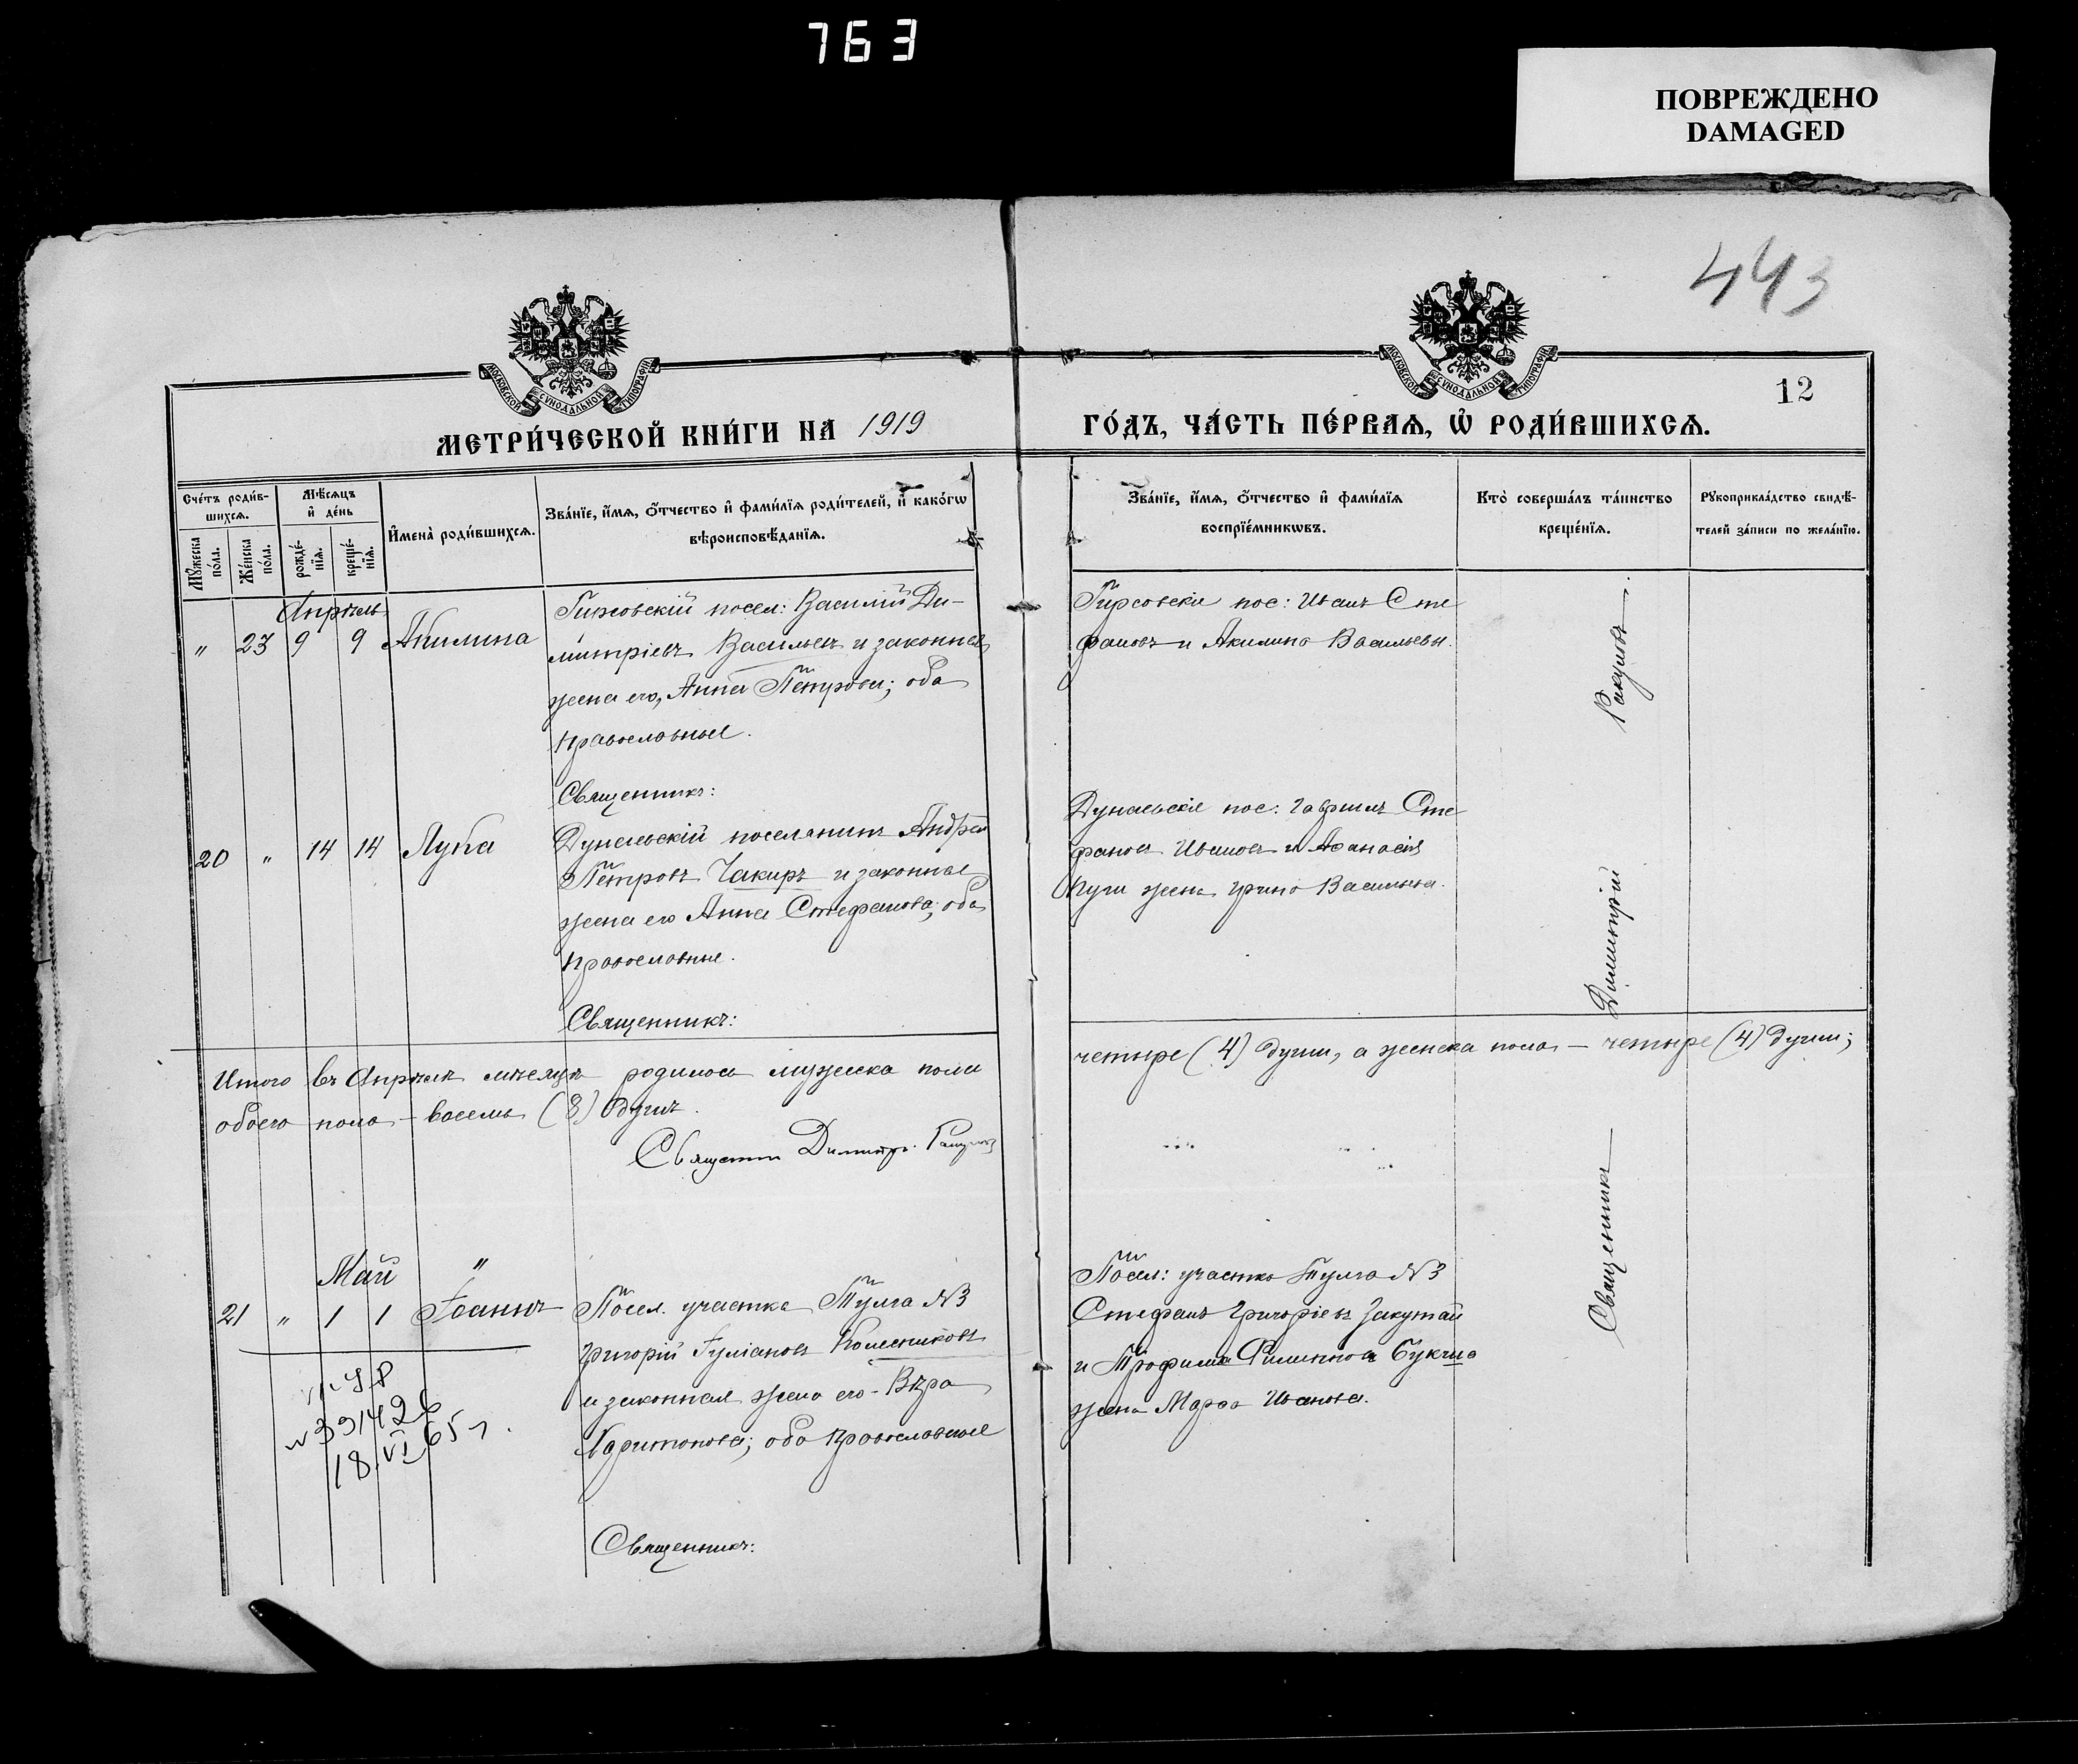 763
ПОВРЕЖДЕНО
DAMAGED
443
12
МОСКОВСКОЙ СУНОДАЛЬНОЙ ТИПОГРАФІИ
МОСКОВСКОЙ СУНОДАЛЬНОЙ ТИПОГРАФІИ
МЕТРИ́ЧЕСКОЙ КНИ́ГИ НА 1919
ГО́ДЪ, ЧА́СТЬ ПЕ́РВАѦ, Ѡ҆ РОДИ́ВШИХСѦ.
Сче́тъ роди́в-
шихсѧ.
Мѣ́сѧцъ
и҆ де́нь
Мꙋ́жеска
по́ла.
Же́нска
по́ла.
рожде́-
нїѧ.
креще́-
нїѧ.
И҆мена̀ роди́вшихсѧ.
Зва́нїе, и҆́мѧ, о҆́тчество и҆ фами́лїѧ роди́телей, и҆ како́гѡ
вѣроисповѣ́данїѧ.
Зва́нїе, и҆́мѧ, о҆́тчество и҆ фами́лїѧ
воспрїе́мникѡвъ.
Кто̀ соверша́лъ та́инство
креще́нїѧ.
Рꙋкоприкла́дство свидѣ́-
телей за́писи по жела́нїю.
Апрѣль
" 23 9 9 Акилина
посел: Василій Ди-
митріевъ Васильевъ и законная
жена его, Анна Петрова; оба
православные.
Священникъ:
пос: Иванъ Сте
фановъ и Акилина Васильевы.
20 " 14 14 Лука
Дунаевскій поселянинъ Андрей
Петровъ Чакиръ и законная
жена его Анна Стефанова; оба
православные.
Священникъ:
Дунаевскіе пос: Гавріилъ Сте
фановъ Ивановъ и Аѳанасія
жена Ирина Васильева.
Итого въ Апрѣлѣ мѣсяцѣ родилось мужеска пола
четыре (4) души, а женска пола — четыре (4) души;
обоего пола — восемь (8) душъ.
Священникъ Димитрій
Май "
21 " 1 1 Іоаннъ
Посел. участка Тулга №3
Григорій Іуліановъ Колесниковъ
и законная жена его - Вѣра
Харитонова; оба православные
Священникъ:
Посел: участка Тулга №3
Стефанъ Григоріевъ Закутай
и Трофима Филиппова
жена Марѳа Иванова.
№391426
18.VI 65 г.
Священникъ Димитрій Ракуловъ